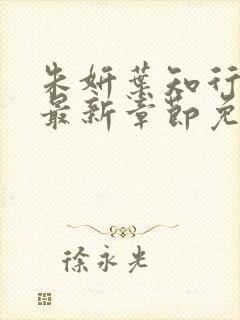 朱妍叶知行
最新章节免
徐永光